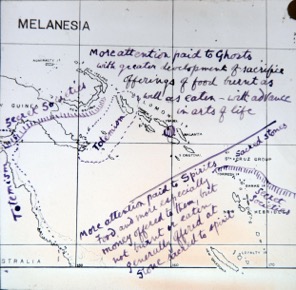 MELANESIA
More attention paid to Ghosts
with greater development of sacrifice
Offerings of food burnt as
well as eaten - with advance
in arts of life
GUINEA
Secret Societies
Totemism
Totemism
MALANTA
Sacred stones
CRUZ GROUP
Secret
Societies
HEBRIDES
More attention paid to Spirits
Food and more especially
money offered to them, but
not burnt or eaten
generally offered at
stone sacred to spirit
STRALIA